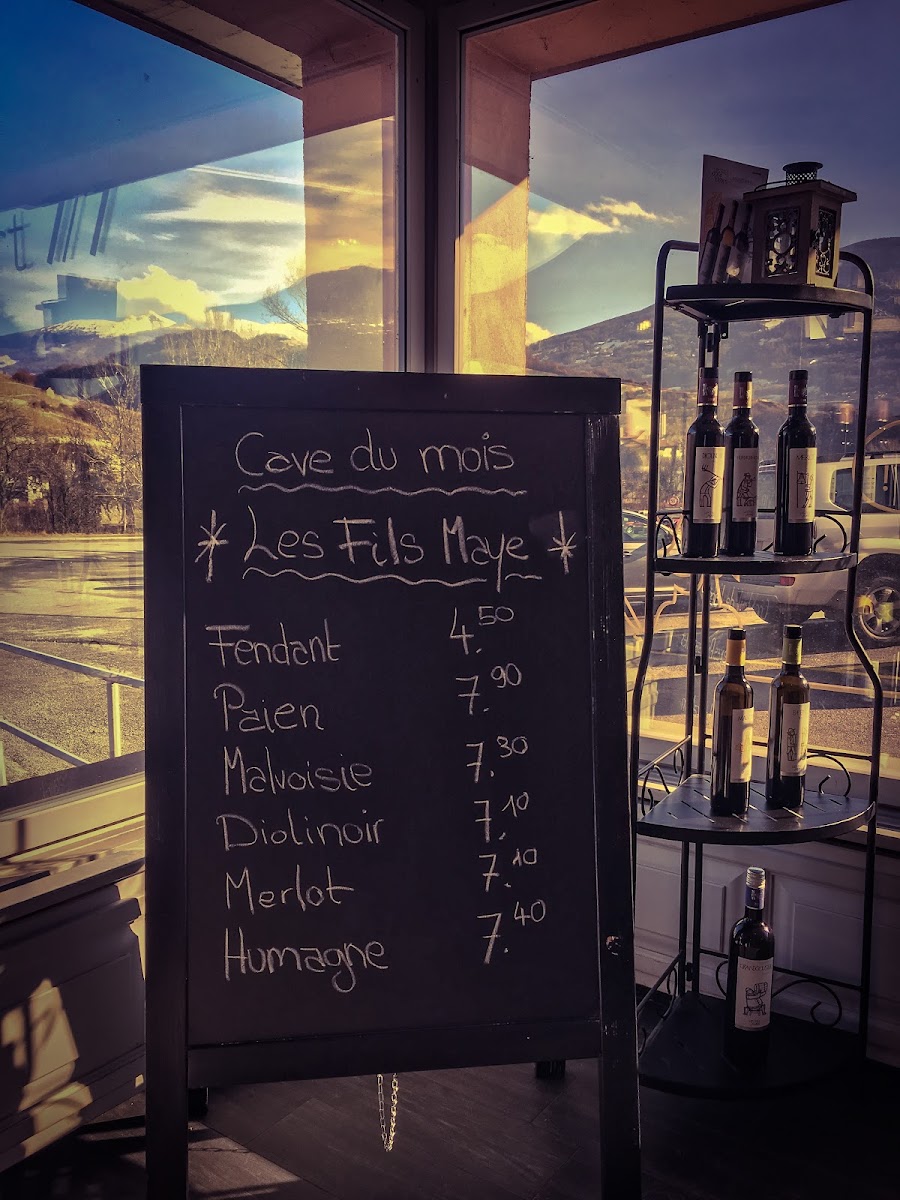 Cave du mois
* Les Fils Maye *
Fendant 4.50
Païen 7.90
Malvoisie 7.30
Diolinoir 7.10
Merlot 7.10
Humagne 7.40